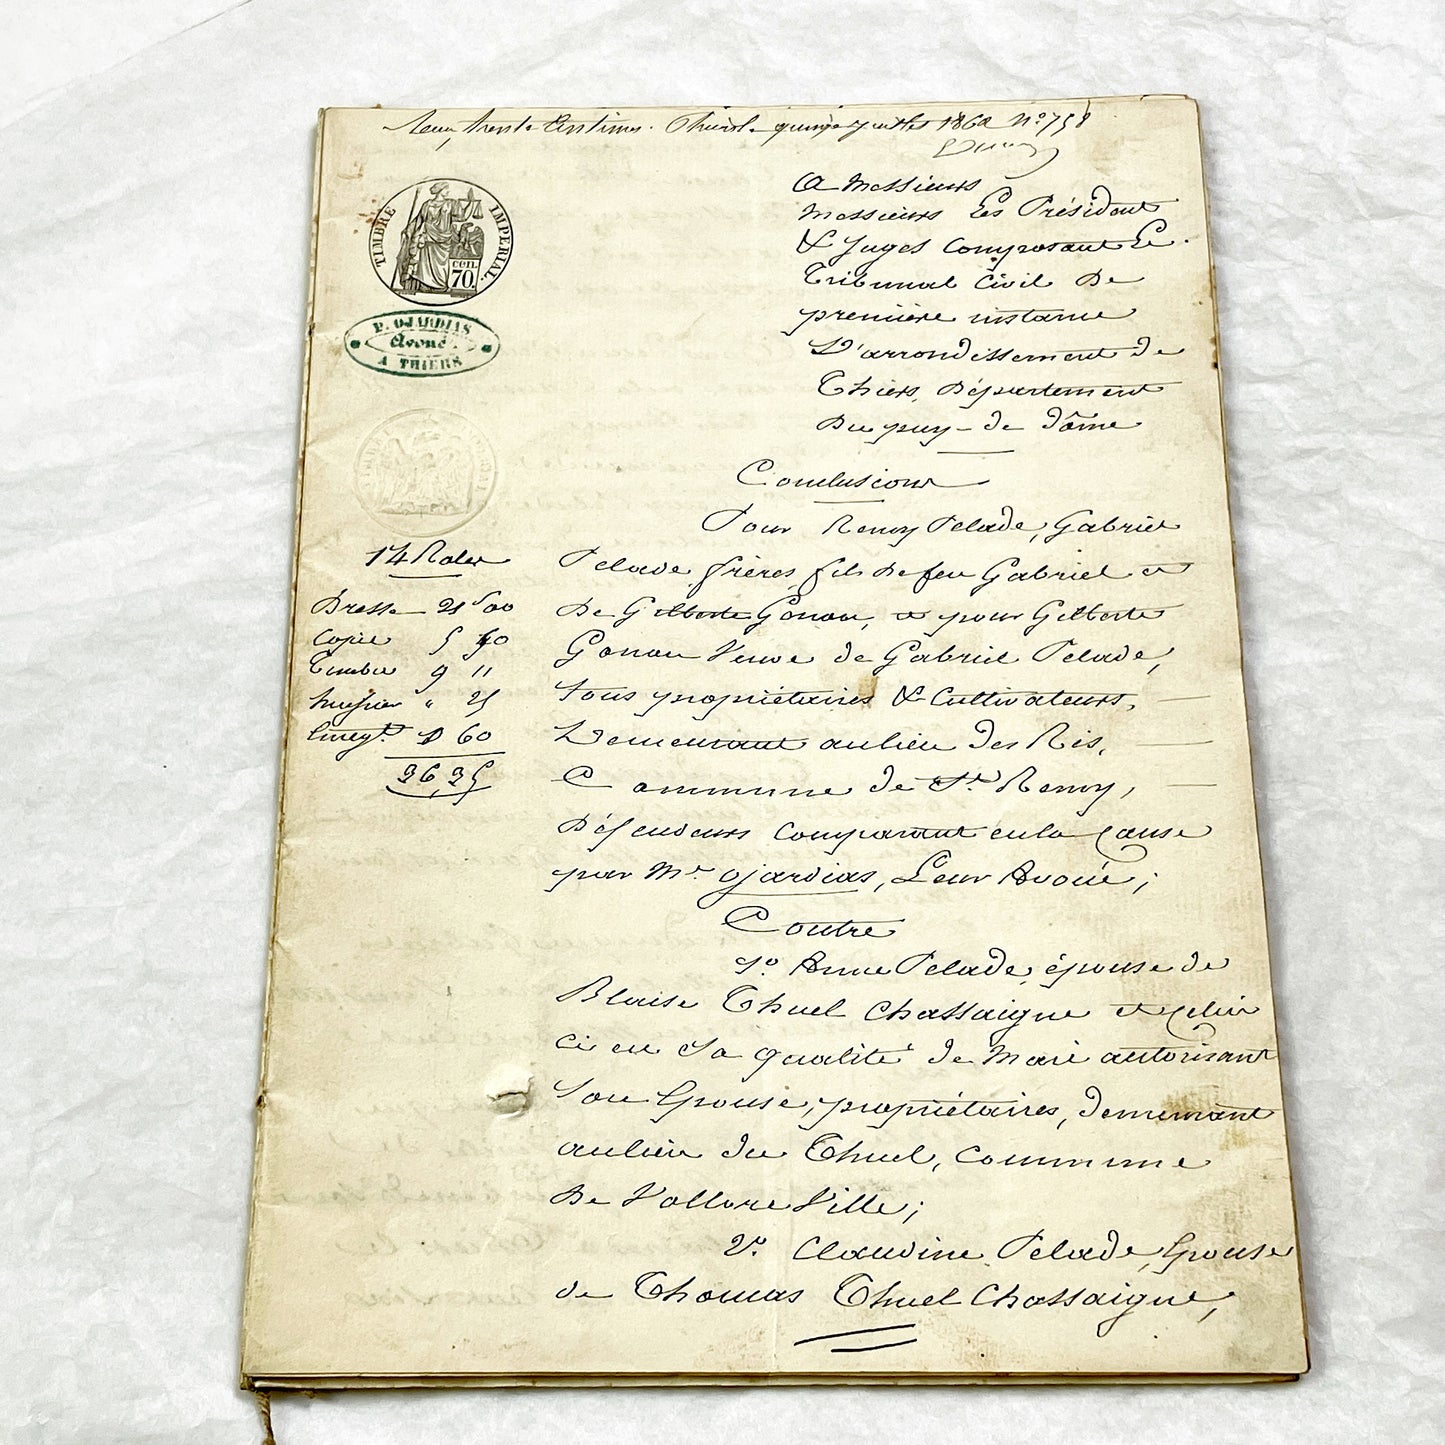 trente Centimes. Thiers le quinze juillet 1862 N° 758
TIMBRE IMPERIAL.
CEN. 70.
P. OJARDIAS
Avoué
A THIERS
A Messieurs
Messieurs Les Président
& Juges Composant Le
Tribunal Civil De
première instance
D'arrondissement de
Thiers, Département
Du puy-de dôme
Conclusions
Pour Remy Pelade, Gabriel
Pelade frères, fils De feu Gabriel et
De Gilberte Gonon, et pour Gilberte
Gonon Veuve de Gabriel Pelade,
Tous propriétaires & Cultivateurs,
Demeurant au lieu des Ris,
Commune de St. Remy,
Défendeurs Comparant en la Cause
par Me Ojardias, Leur Avoué;
Contre
1° Anne Pelade, épouse de
Blaise Thuel Chassaigne et Celui
ci en Sa qualité de Mari autorisant
Son Epouse, propriétaires, demeurant
au lieu du Thuel, Commune
De Vollore Ville;
2° Claudine Pelade, Epouse
de Thomas Thuel Chassaigne,
14 Roles
Dresse 21 f 00
Copie 5 40
Timbre 9 "
huissier " 25
Enreg.t 60